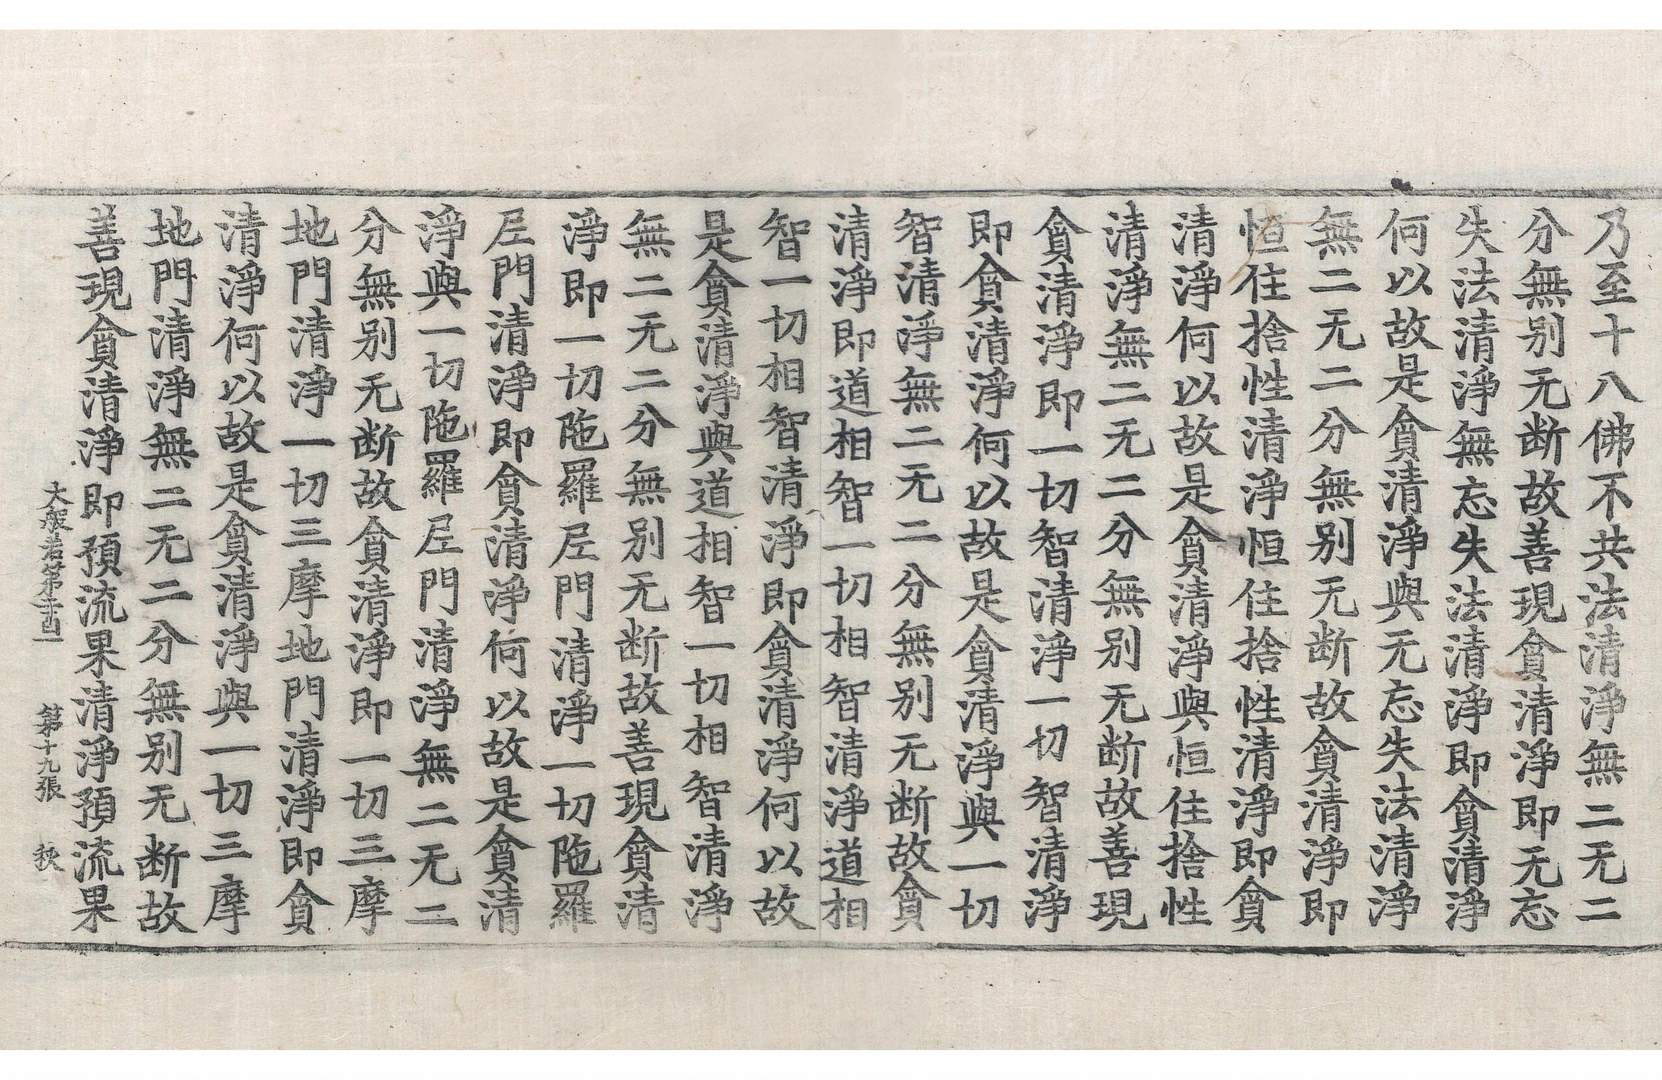 乃至十八佛不共法清淨無二无二
分無别无断故善現貪清淨即无忘
失法清淨無忘失法清淨即貪清淨
何以故是貪清淨與无忘失法清淨
無二无二分無别无断故貪清淨即
恒住捨性清淨恒住捨性清淨即貪
清淨何以故是貪清淨與恒住捨性
清淨無二无二分無别无断故善現
貪清淨即一切智清淨一切智清淨
即貪清淨何以故是貪清淨與一切
智清淨無二无二分無别无断故貪
清淨即道相智一切相智清淨道相
智一切相智清淨即貪清淨何以故
是貪清淨與道相智一切相智清淨
無二无二分無别无断故善現貪清
淨即一切陁羅尼門清淨一切陁羅
尼門清淨即貪清淨何以故是貪清
淨與一切陁羅尼門清淨無二无二
分無别无断故貪清淨即一切三摩
地門清淨一切三摩地門清淨即貪
清淨何以故是貪清淨與一切三摩
地門清淨無二无二分無别无断故
善現貪清淨即預流果清淨預流果
大般若第 第十九張 秋